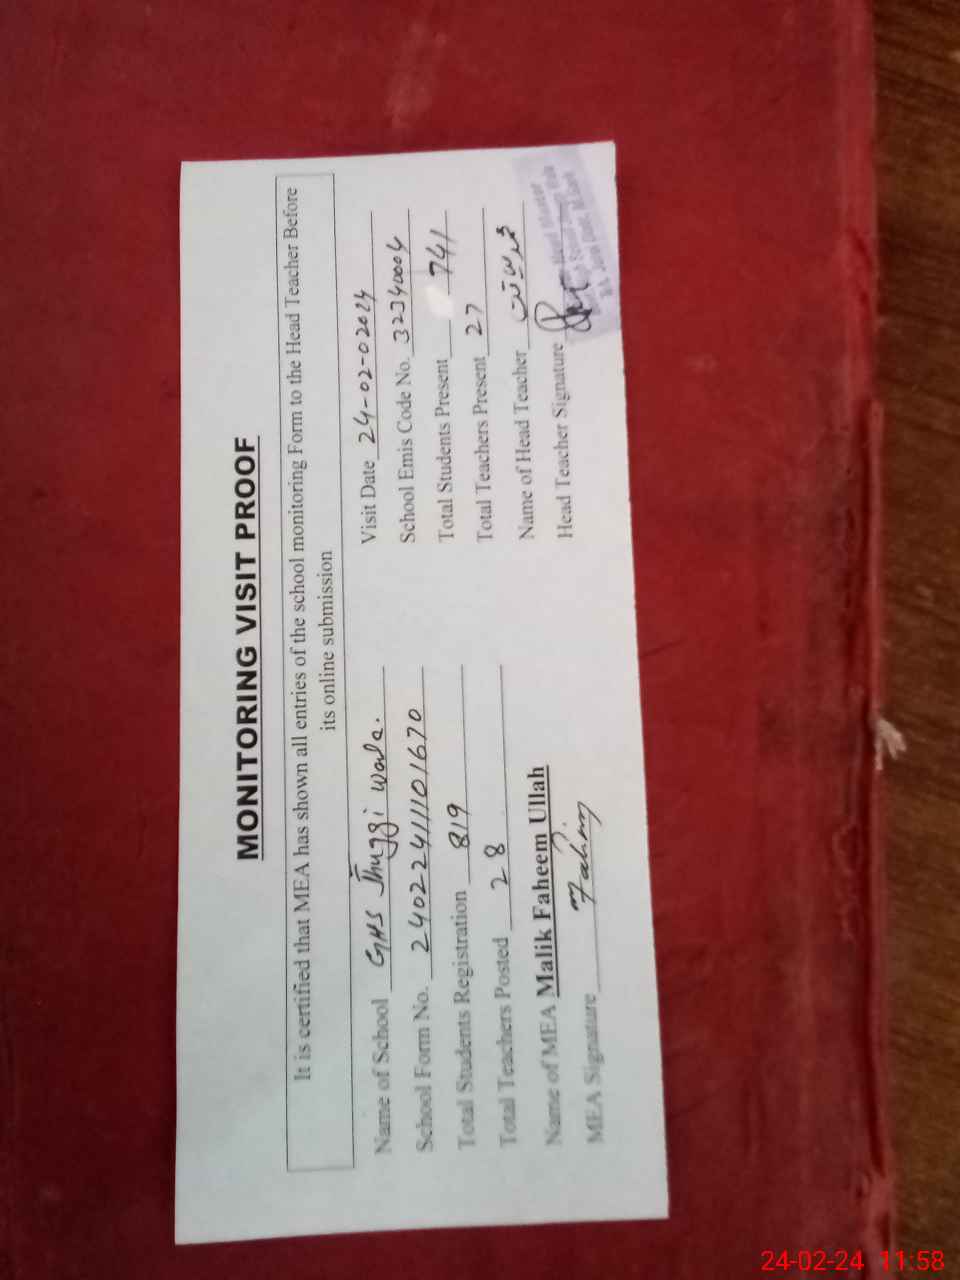 MONITORING VISIT PROOF
It is certified that MEA has shown all entries of the school monitoring Form to the Head Teacher Before
its online submission
Name of School GHS Thuggi wala.
Visit Date 24-02-02024
School Form No. 24022411101670
School Emis Code No. 32340004
Total Students Registration 819
Total Students Present 741
Total Teachers Posted 28
Total Teachers Present 27
Name of MEA Malik Faheem Ullah
Name of Head Teacher
MEA Signature Fahim
Head Teacher Signature
Head Master
24-02-24 11:58